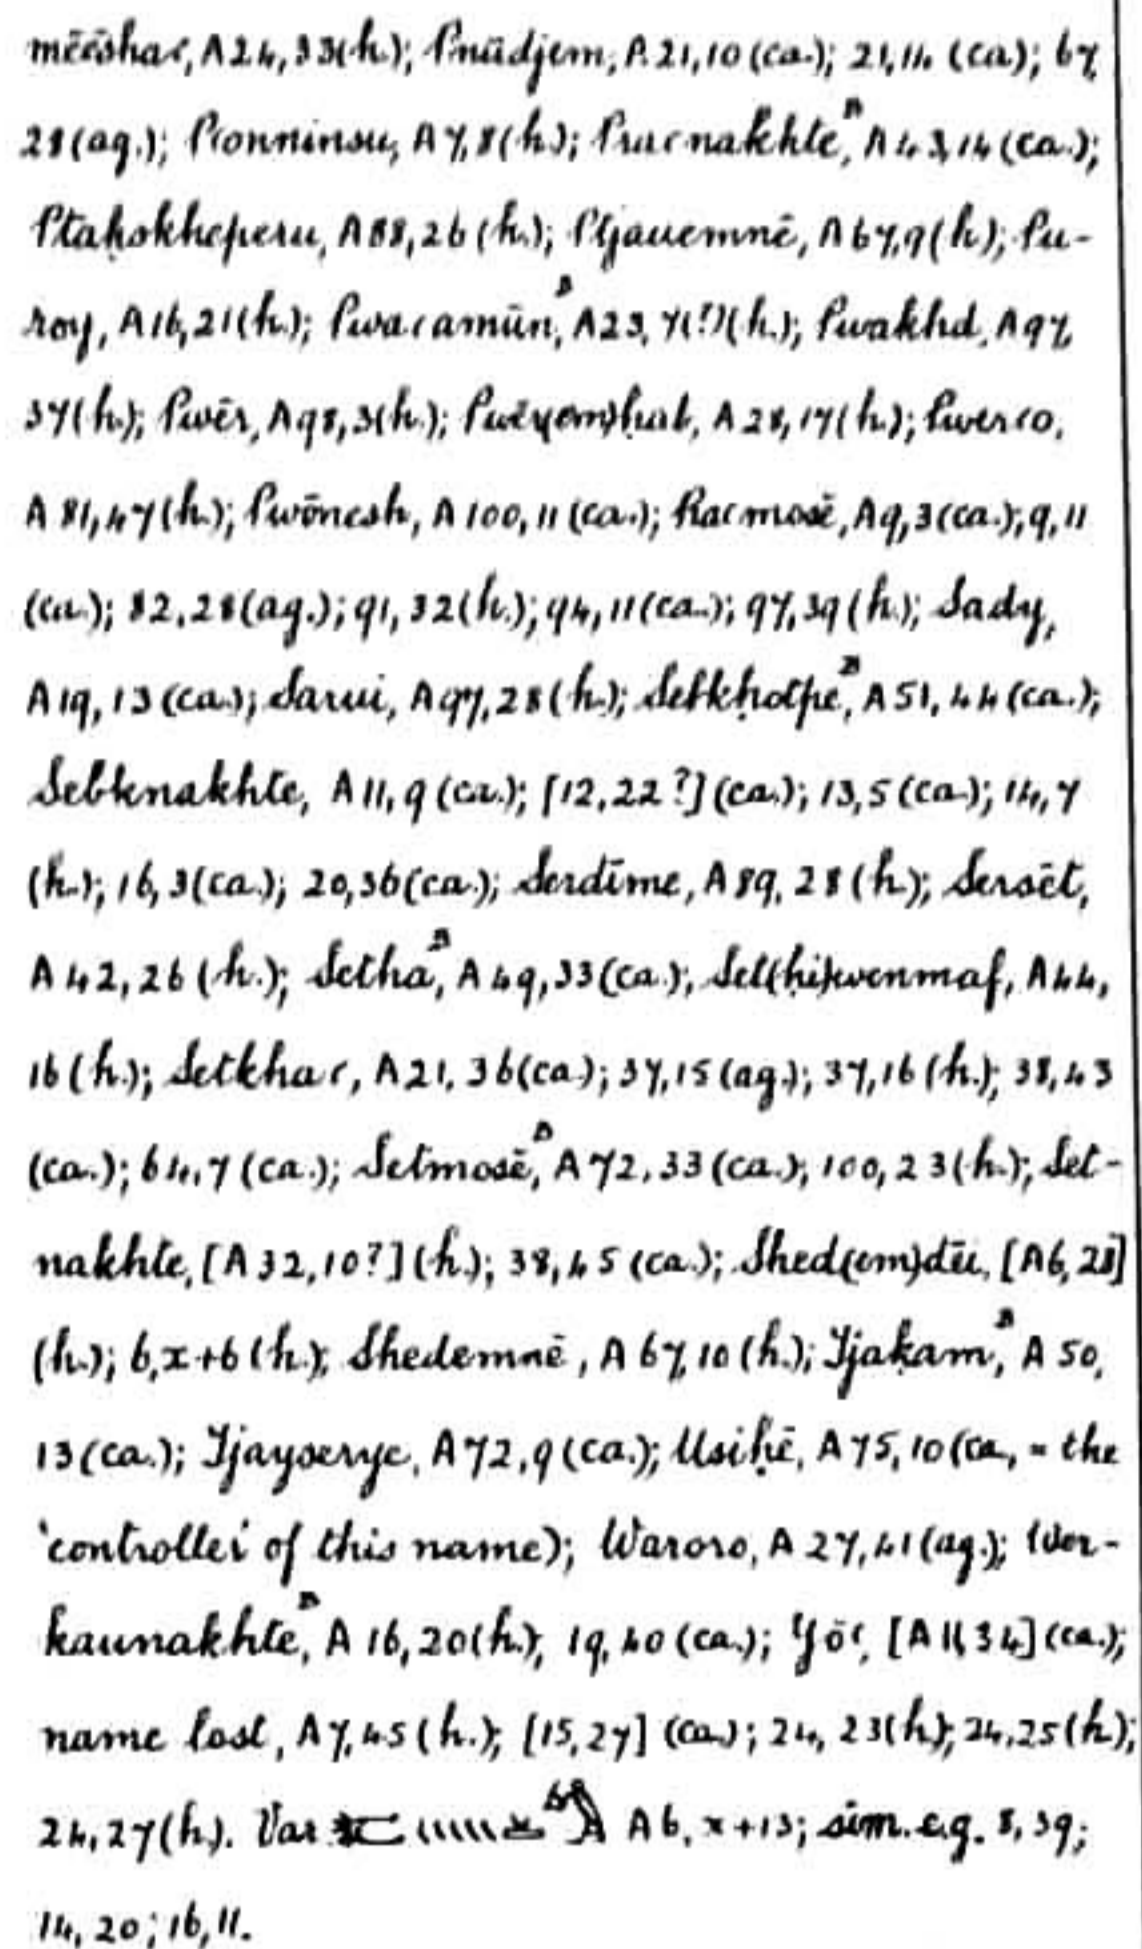 mēˁōshaˁ, A24,33(h.); Pnūdjem, A 21,10 (ca.); 21,14 (ca); 67,
28(ag.); Pˁonninsu, A7,8(h.); Praˁnakhte,ᴮ A43,14(ca.);
Ptaḥokheperu, A88,26(h.); Ptjauemnē, A67,9(h); Pu-
roy, A16,21(h.); Pwaˁamūn,ᴮ A23,7(!)(h.); Pwakhd, A97,
37(h.); Pwēr, A98,3(h.); Pwēr(em)ḥab, A28,17(h.); Pwerˁo,
A81,47(h.); Pwōnesh, A100,11(ca.); Raˁmosĕ, A9,3(ca.); 9,11
(ca.); 82,28(ag.); 91,32(h.); 94,11(ca.); 97,39(h.); Sady,
A19,13(ca.); Sarui, A97,28(h.); Sebkḥotpe,ᴮ A51,44(ca.);
Sebknakhte, A11,9(ca.); [12,22?](ca.); 13,5(ca.); 14,7
(h.); 16,3(ca.); 20,36(ca.); Serdīme, A89,28(h.); Sersēt,
A42,26(h.); Setha,ᴮ A49,33(ca.); Set(ḥi)wenmaf, A44,
16(h.); Setkhaˁ, A21,36(ca.); 37,15(ag.); 37,16(h.); 38,43
(ca.); 64,7(ca.); Setmosĕ,ᴮ A72,33(ca.); 100,23(h.); Set-
nakhte, [A32,10?](h.); 38,45(ca.); Shed(em)dēi, [A6,28]
(h.); 6,x+6(h.); Shedemnē, A67,10(h.); Tjakam,ᴮ A50,
13(ca.); Tjayserye, A72,9(ca.); Usiḥē, A75,10(ca, = the
'controller' of this name); Waroro, A27,41(ag.); Wer-
kaunakhte,ᴮ A16,20(h.); 19,40(ca.); Yōˁ, [A11,34](ca.);
name lost, A7,45(h.); [15,27](ca.); 24,23(h); 24,25(h);
24,27(h). Var. A6,x+13; sim. e.g. 8,39;
14,20; 16,11.